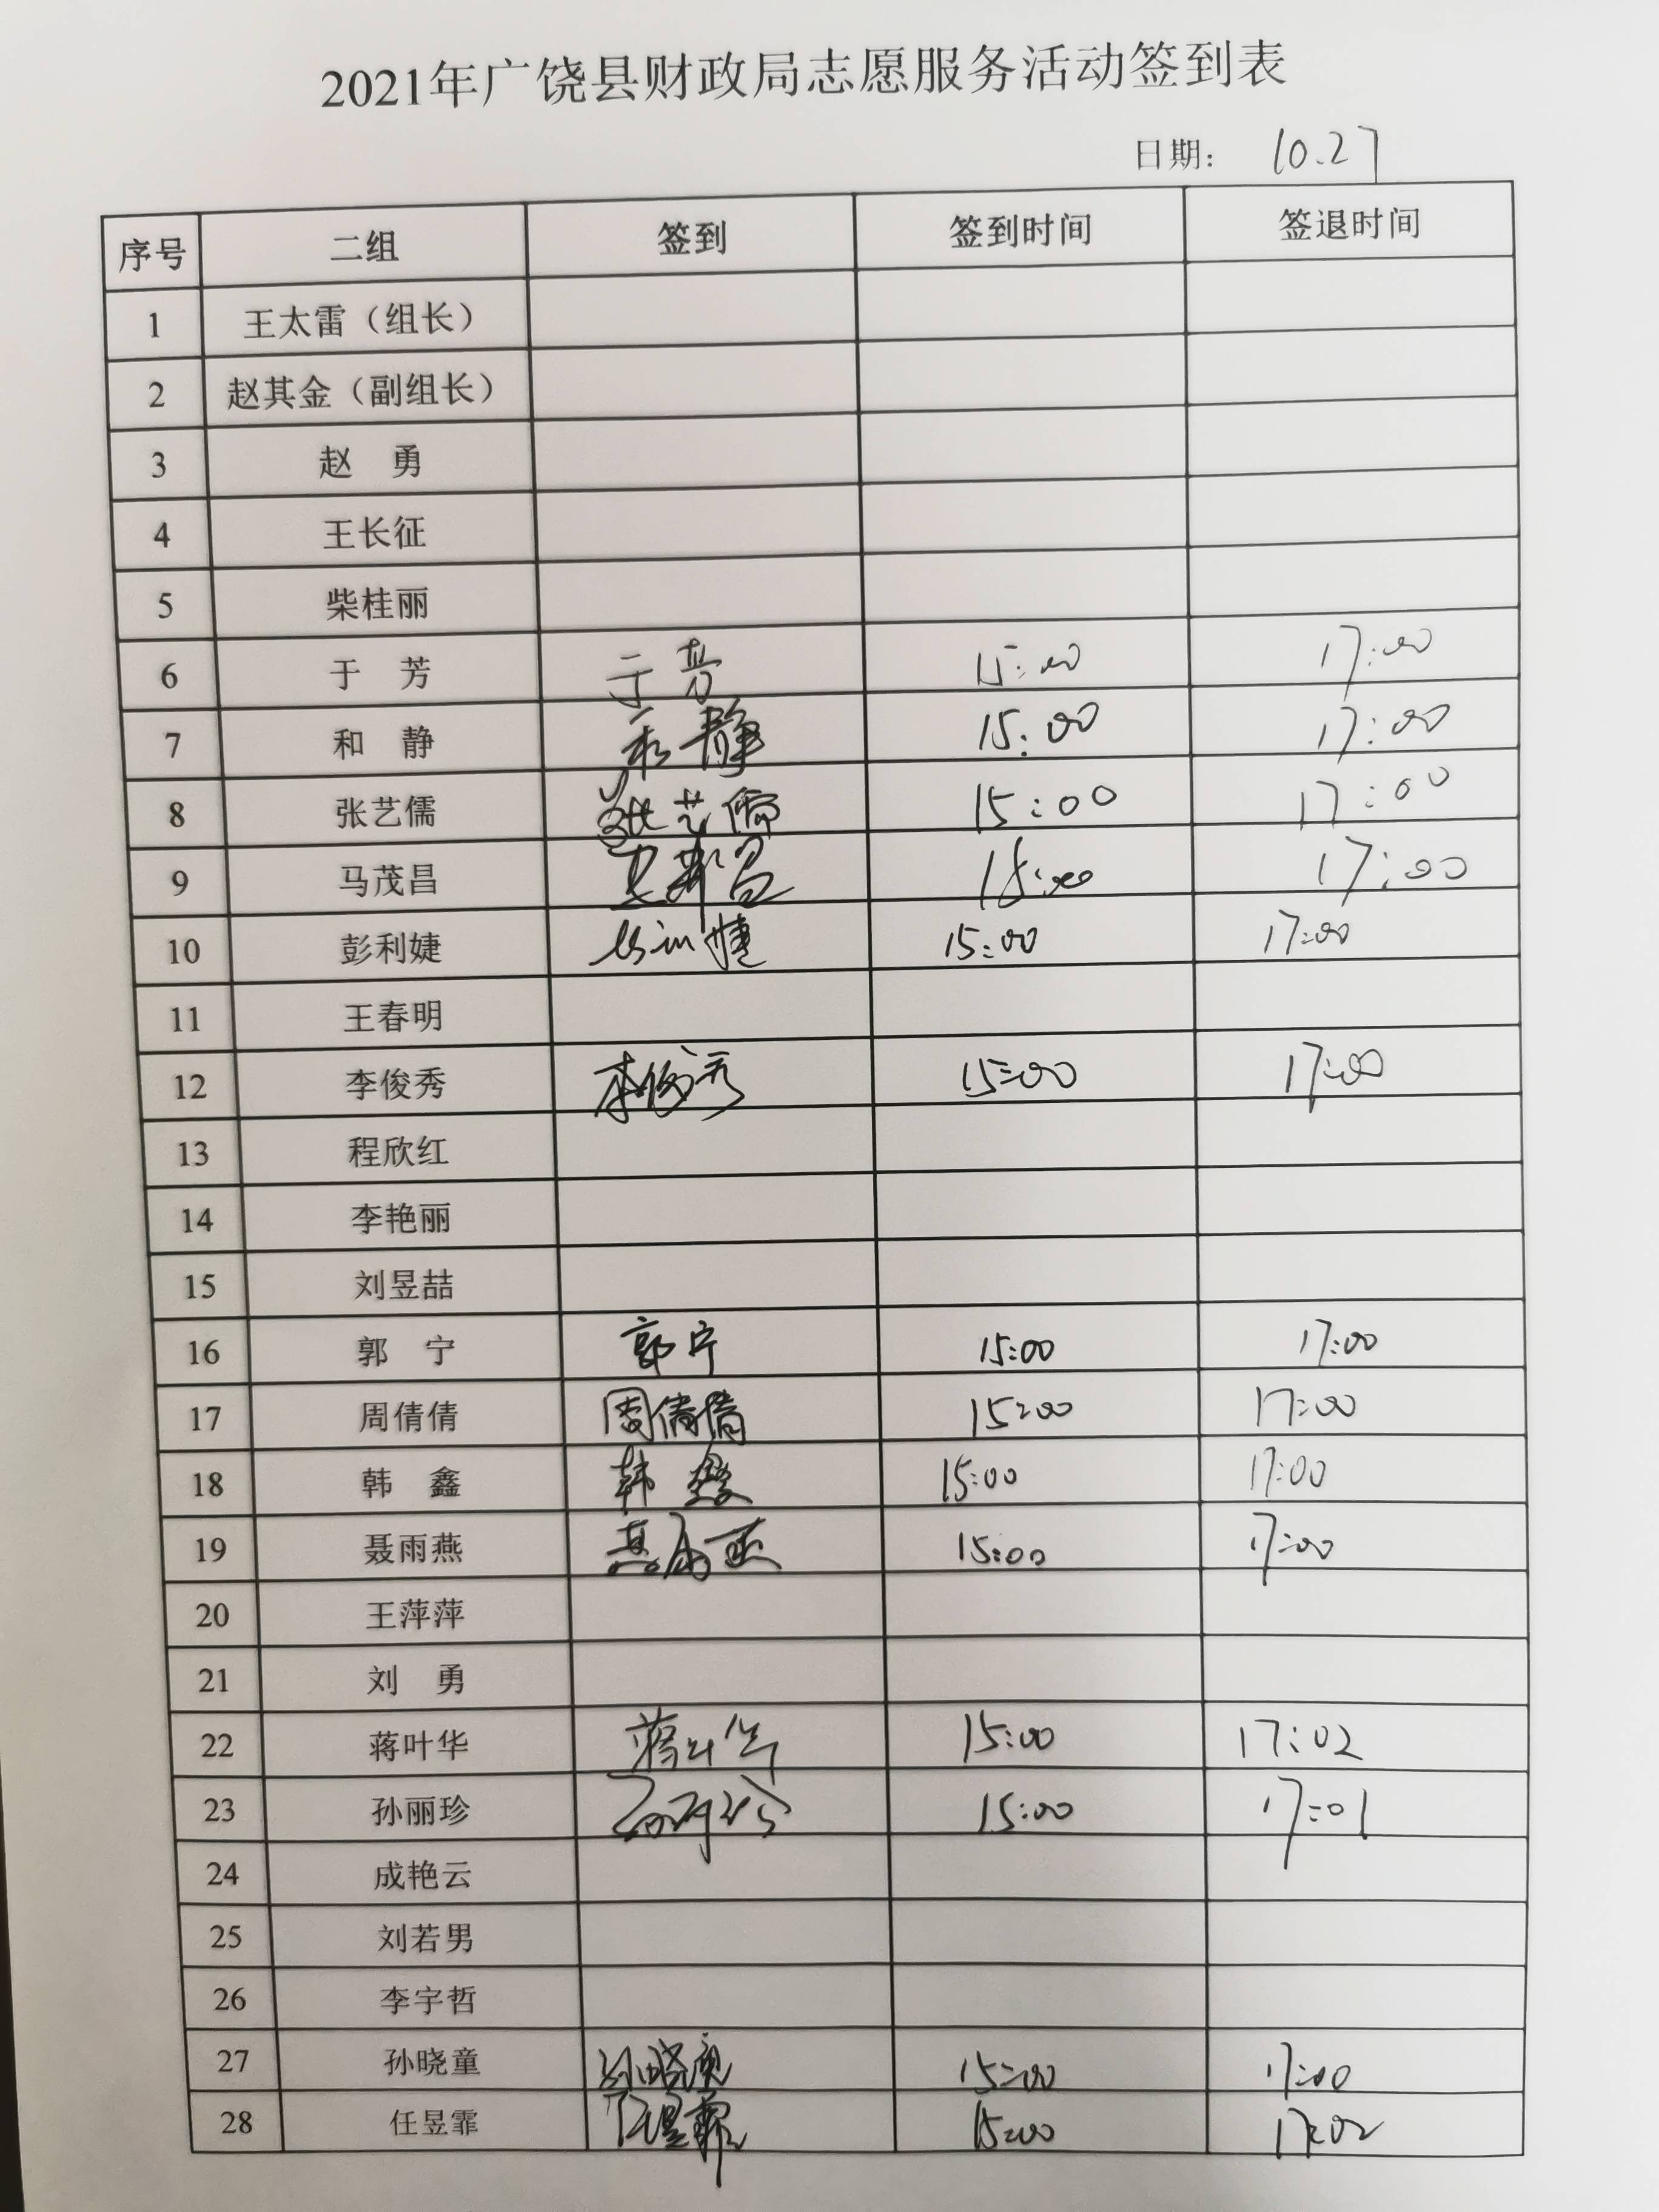 2021年广饶县财政局志愿服务活动签到表
日期： 10.27
序号 二组 签到 签到时间 签退时间
1 王太雷（组长）
2 赵其金（副组长）
3 赵 勇
4 王长征
5 柴桂丽
6 于 芳 于芳 15:00 17:00
7 和 静 和静 15:00 17:00
8 张艺儒 张艺儒 15:00 17:00
9 马茂昌 马茂昌 15:00 17:00
10 彭利婕 彭利婕 15:00 17:00
11 王春明
12 李俊秀 李俊秀 15:00 17:00
13 程欣红
14 李艳丽
15 刘昱喆
16 郭 宁 郭宁 15:00 17:00
17 周倩倩 周倩倩 15:00 17:00
18 韩 鑫 韩鑫 15:00 17:00
19 聂雨燕 聂雨燕 15:00 17:00
20 王萍萍
21 刘 勇
22 蒋叶华 蒋叶华 15:00 17:02
23 孙丽珍 孙丽珍 15:00 17:01
24 成艳云
25 刘若男
26 李宇哲
27 孙晓童 孙晓童 15:00 17:00
28 任昱霏 任昱霏 15:00 17:02